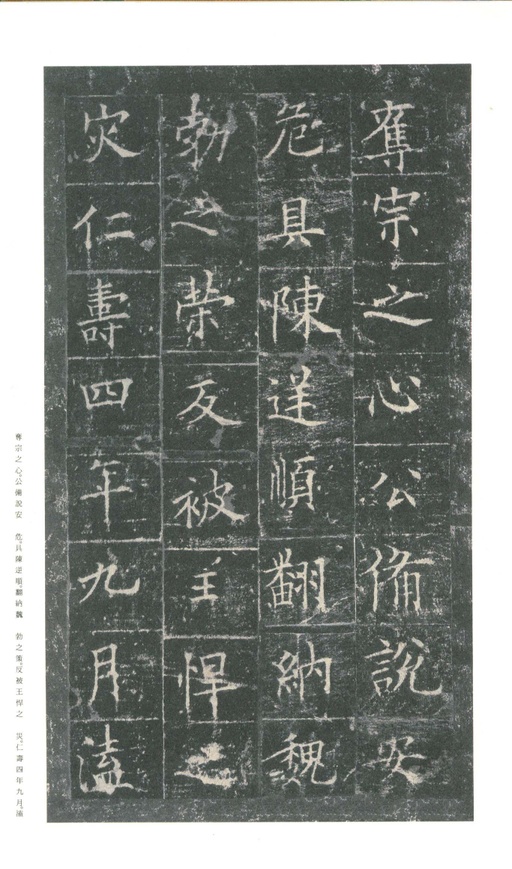 奪宗之心公俻說安
危具陳逆順翻納魏
勃之榮反被王悍之
灾仁壽四年九月溘
奪宗之心。公備說安　危。具陳逆順。翻納魏　勃之策。反被王悍之　災。仁壽四年九月。溘